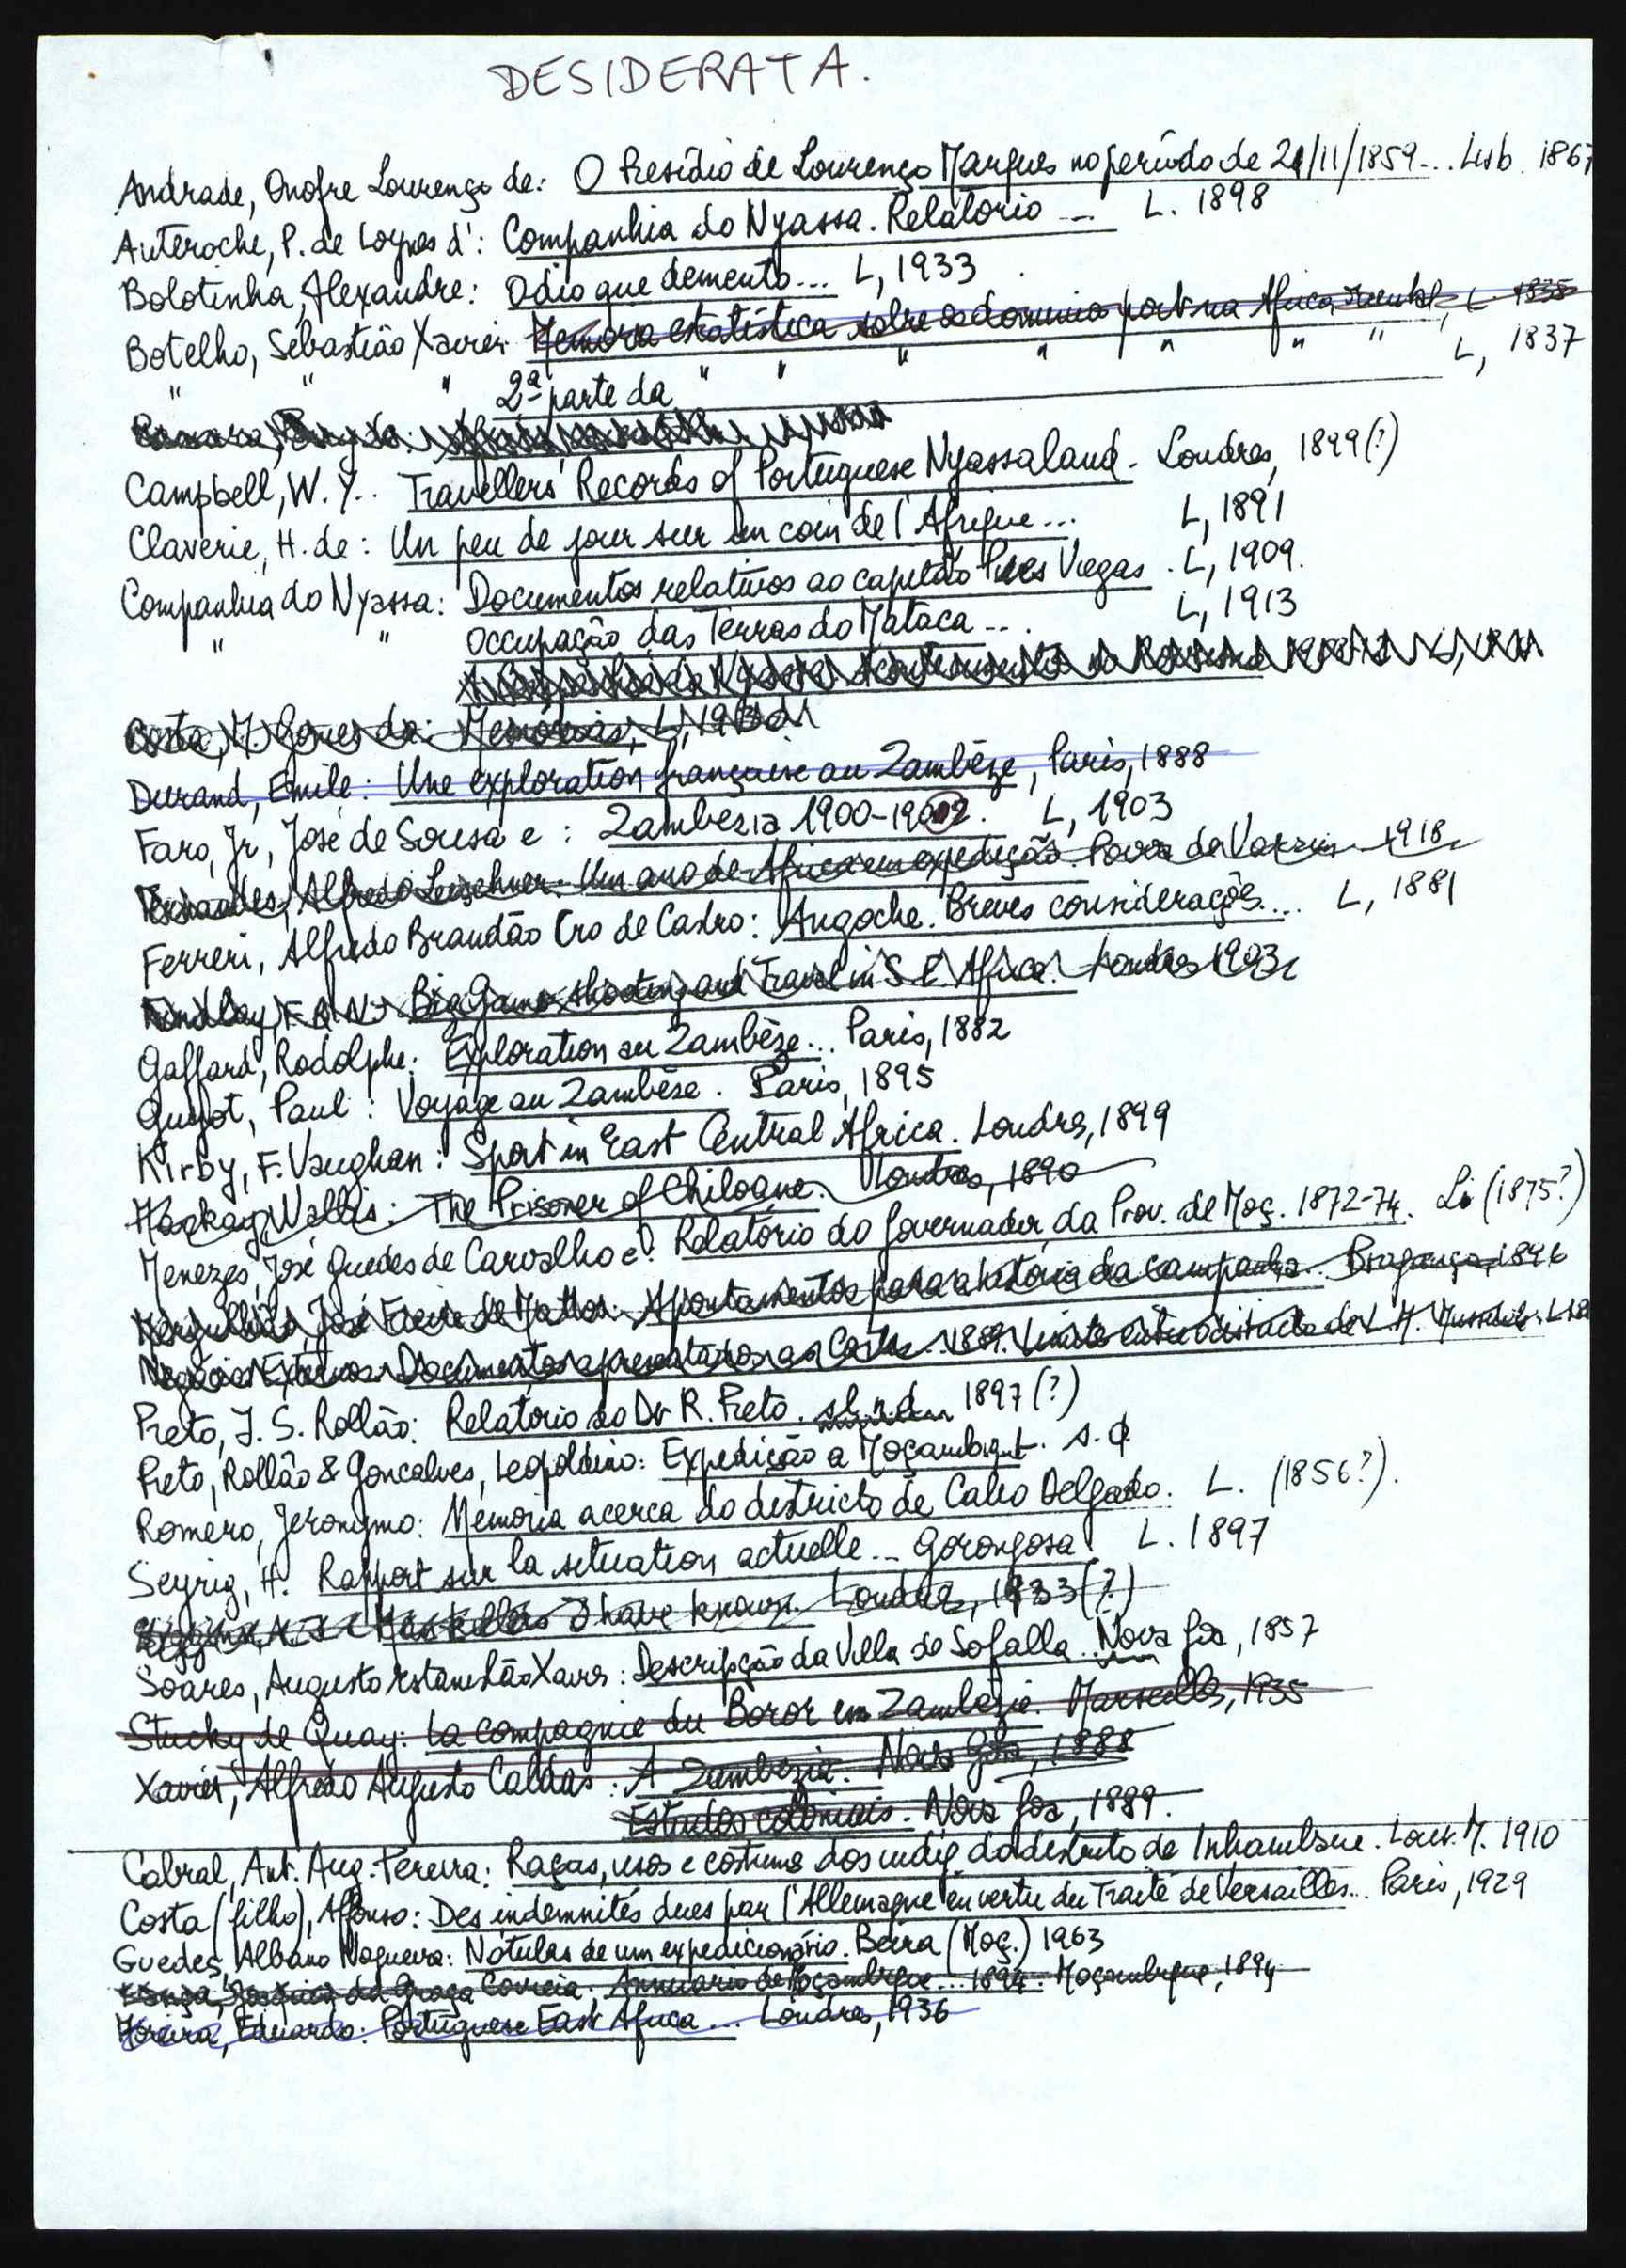 DESIDERATA.
Andrade, Onofre Lourenço de: O Presídio de Lourenço Marques no período de 24/11/1859... Lisb. 1867
Auteroche, P. de Loynes d': Companhia do Nyassa. Relatorio ... L. 1898
Bolotinha, Alexandre: Odio que dementa... L, 1933
Botelho, Sebastião Xavier: Memoria estatística sobre os dominios port. na Africa Oriental, L. 1835
" " " 2ª parte da " " " " " " " L, 1837
Campbell, W. Y.. Travellers' Records of Portuguese Nyassaland. Londres, 1899(?)
Claverie, H. de: Un peu de jour sur un coin de l'Afrique... L, 1891
Companhia do Nyassa: Documentos relativos ao capitão Pires Viegas. L, 1909.
" " Occupação das Terras do Mataca ... L, 1913
A Companhia do Nyassa
Costa, M. Gomes da: Memórias, L, 193
Durand, Emile: Une exploration française au Zambèze, Paris, 1888
Faro, Jr, José de Sousa e: Zambezia 1900-1902. L, 1903
Alfredo Leischner. Um ano de Africa em expedição. Povoa de Varzim 1918
Ferreri, Alfredo Brandão Cro de Castro: Angoche. Breves considerações... L, 1881
Findlay, F. R. N. Big Game shooting and Travel in S. E. Africa. Londres 1903
Gaffard, Rodolphe: Exploration au Zambèze... Paris, 1882
Guyot, Paul: Voyage au Zambèse. Paris, 1895
Kirby, F. Vaughan: Sport in East Central Africa. Londres, 1899
Mackay, Wallis: The Prisoner of Chiloane. Londres, 1890
Menezes, José Guedes de Carvalho e: Relatório do Governador da Prov. de Moç. 1872-74. Li (1875?)
Mergulhão, José Freire de Mattos: Apontamentos para a historia da campanha. Bragança, 1896
Negócios Externos. Documentos apresentados as Cortes. 1889. Limites entre o districto de L. M.
Preto, J. S. Rollão: Relatorio do Dr R. Preto. 1897(?)
Preto, Rollão & Goncalves, Leopoldino: Expedição a Moçambique. s.
Romero, Jeronymo: Memoria acerca do districto de Cabo Delgado. L. (1856?).
Seyrig, H. Rapport sur la situation actuelle... Gorongosa L. 1897
I have known. Londres, 1933(?)
Soares, Augusto Estanislão Xavier: Descripção da Villa de Sofalla.. Nova Goa, 1857
Stucky de Quay: La compagnie du Boror en Zambézie. Marseille, 1935
Xavier, Alfredo Augusto Caldas: A Zambezia. Nova Goa, 1888
Estudos coloniais. Nova Goa, 1889.
Cabral, Ant. Aug. Pereira: Raças, usos e costumes dos indig. do districto de Inhambane. Lour. M. 1910
Costa (filho), Affonso: Des indemnités dues par l'Allemagne en vertu du Traité de Versailles... Paris, 1929
Guedes, Albano Nogueira: Nótulas de um expedicionário. Beira (Moç.) 1963
Joaquim da Graça Correia. Annuario de Moçambique... 1894. Moçambique, 1894
Moreira, Eduardo: Portuguese East Africa... Londres, 1936